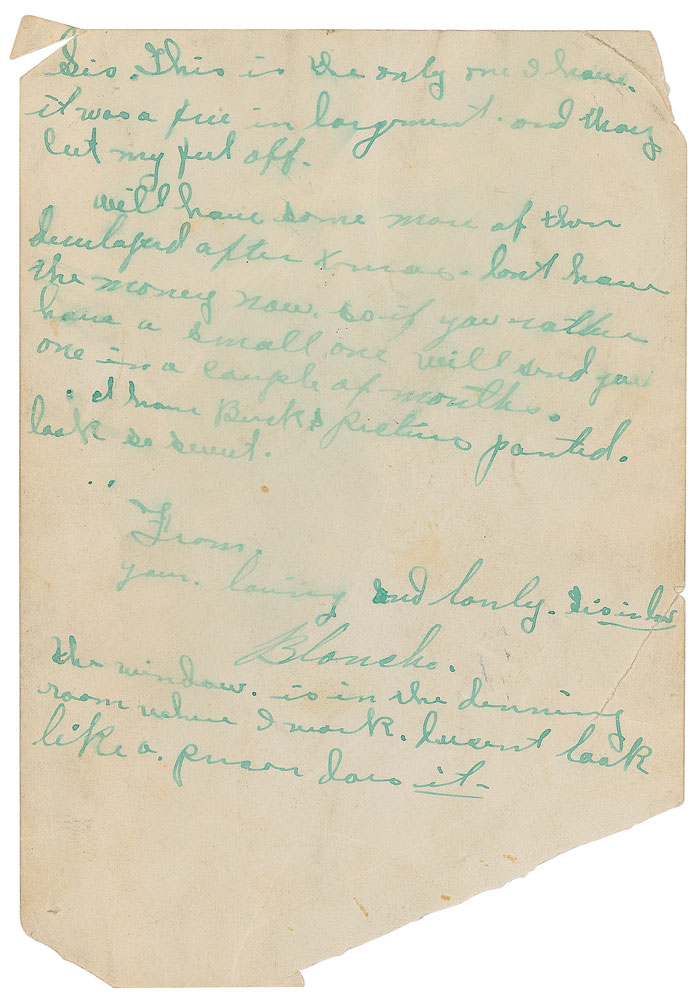 Sis. This is the only one I have.
it was a free in largment. and they
cut my feet off.
will have some more of them
develaped after xmas. dont have
the money now. so if you rather
have a small one will send you
one in a couple of months.
I have Buck's picture panted.
look so sweet.
From,
your. loving and lonly. sis in law
Blanche.
the window. is in the denning
room where I work. dusent look
like a. prison does it-